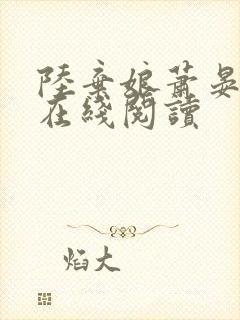 陸棄娘蕭晏
在綫閱讀
焰大